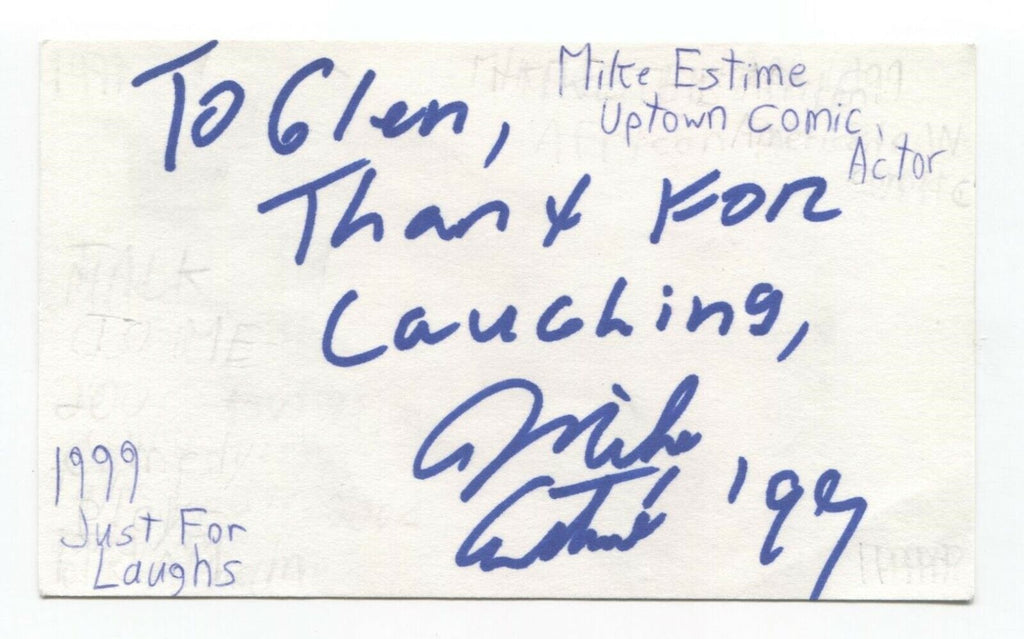 To Glen,
Mike Estime
Uptown Comic,
Actor
Thanx For
Laughing,
Mike
Estimé '99
1999
Just For
Laughs